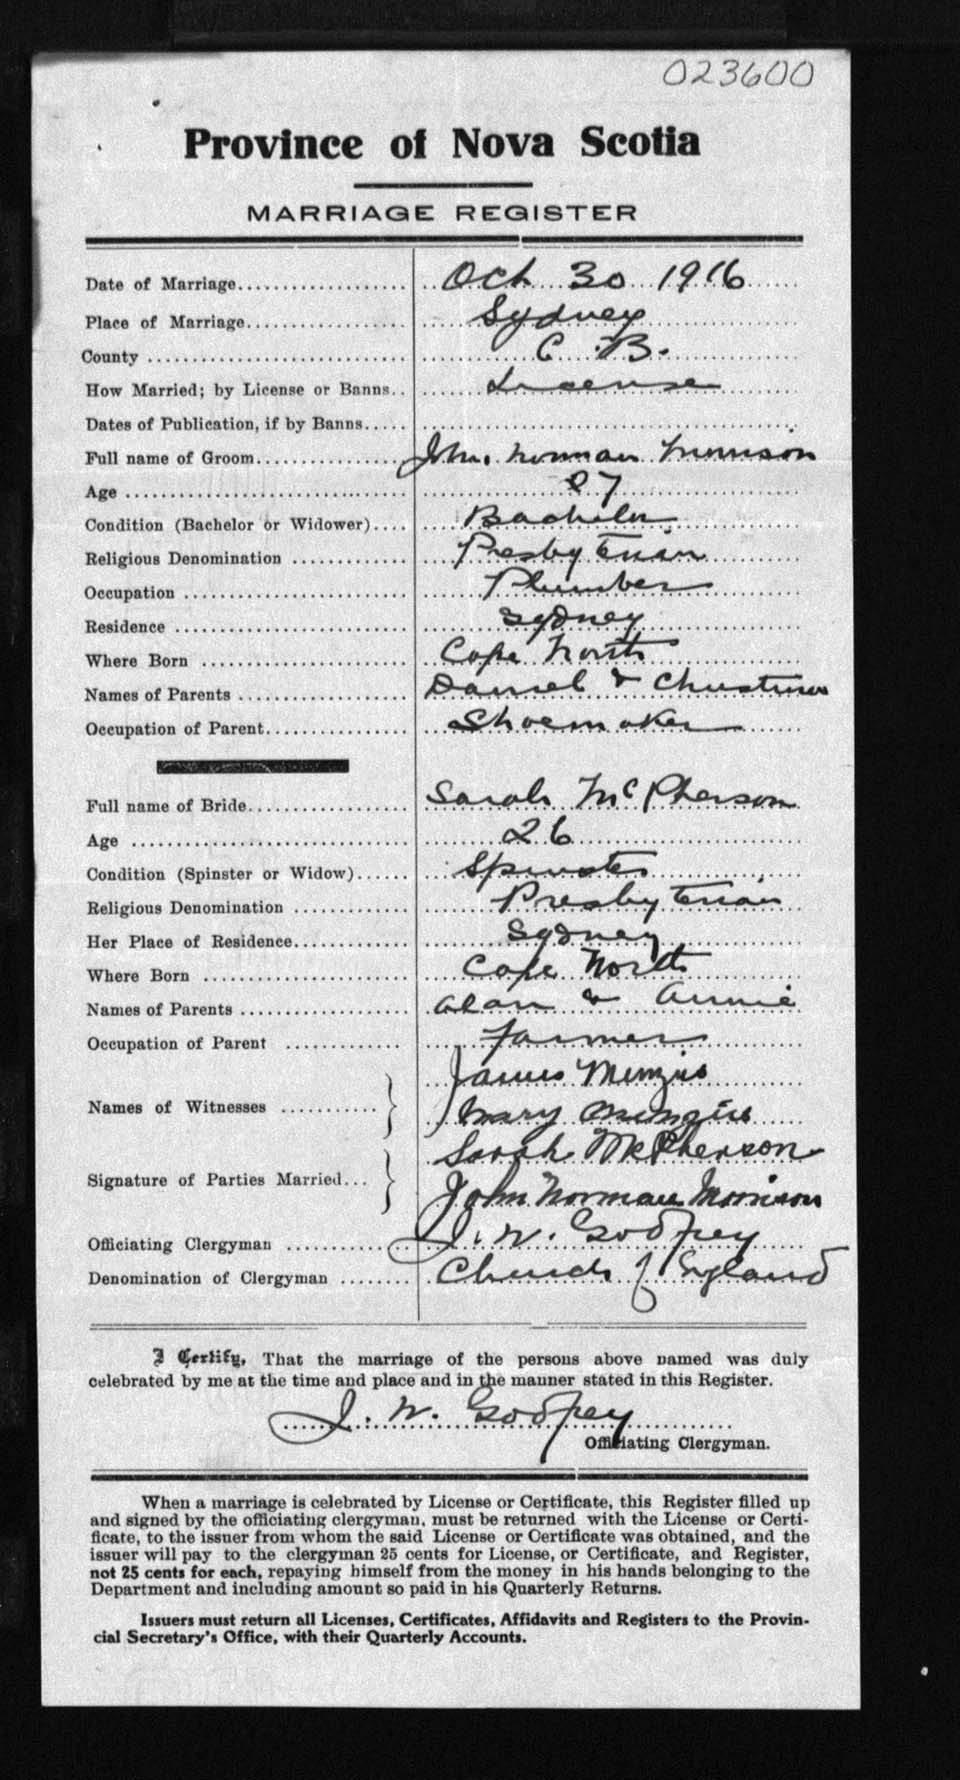 023600
Province of Nova Scotia
MARRIAGE REGISTER
Date of Marriage................... Oct 30 1916
Place of Marriage.................. Sydney
County ............................... C. B.
How Married; by License or Banns.. License
Dates of Publication, if by Banns.....
Full name of Groom................. John Norman Morrison
Age ................................. 27
Condition (Bachelor or Widower).... Bachelor
Religious Denomination ............. Presbyterian
Occupation .......................... Plumber
Residence ........................... Sydney
Where Born ........................ Cape North
Names of Parents ................... Daniel & Christina
Occupation of Parent................ Shoemaker
Full name of Bride................... Sarah McPherson
Age ................................ 26
Condition (Spinster or Widow)...... Spinster
Religious Denomination ............. Presbyterian
Her Place of Residence............. Sydney
Where Born ........................ Cape North
Names of Parents ................... Alan & Annie
Occupation of Parent ............. Farmer
James Menzies
Names of Witnesses ........... Mary Menzies
Sarah McPherson
Signature of Parties Married...
John Norman Morrison
Officiating Clergyman ............ J. W. Godfrey
Denomination of Clergyman ........ Church of England
I Certify, That the marriage of the persons above named was duly
celebrated by me at the time and place and in the manner stated in this Register.
J. W. Godfrey
Officiating Clergyman.
When a marriage is celebrated by License or Certificate, this Register filled up
and signed by the officiating clergyman, must be returned with the License or Certi-
ficate, to the issuer from whom the said License or Certificate was obtained, and the
issuer will pay to the clergyman 25 cents for License, or Certificate, and Register,
not 25 cents for each, repaying himself from the money in his hands belonging to the
Department and including amount so paid in his Quarterly Returns.
Issuers must return all Licenses, Certificates, Affidavits and Registers to the Provin-
cial Secretary's Office, with their Quarterly Accounts.